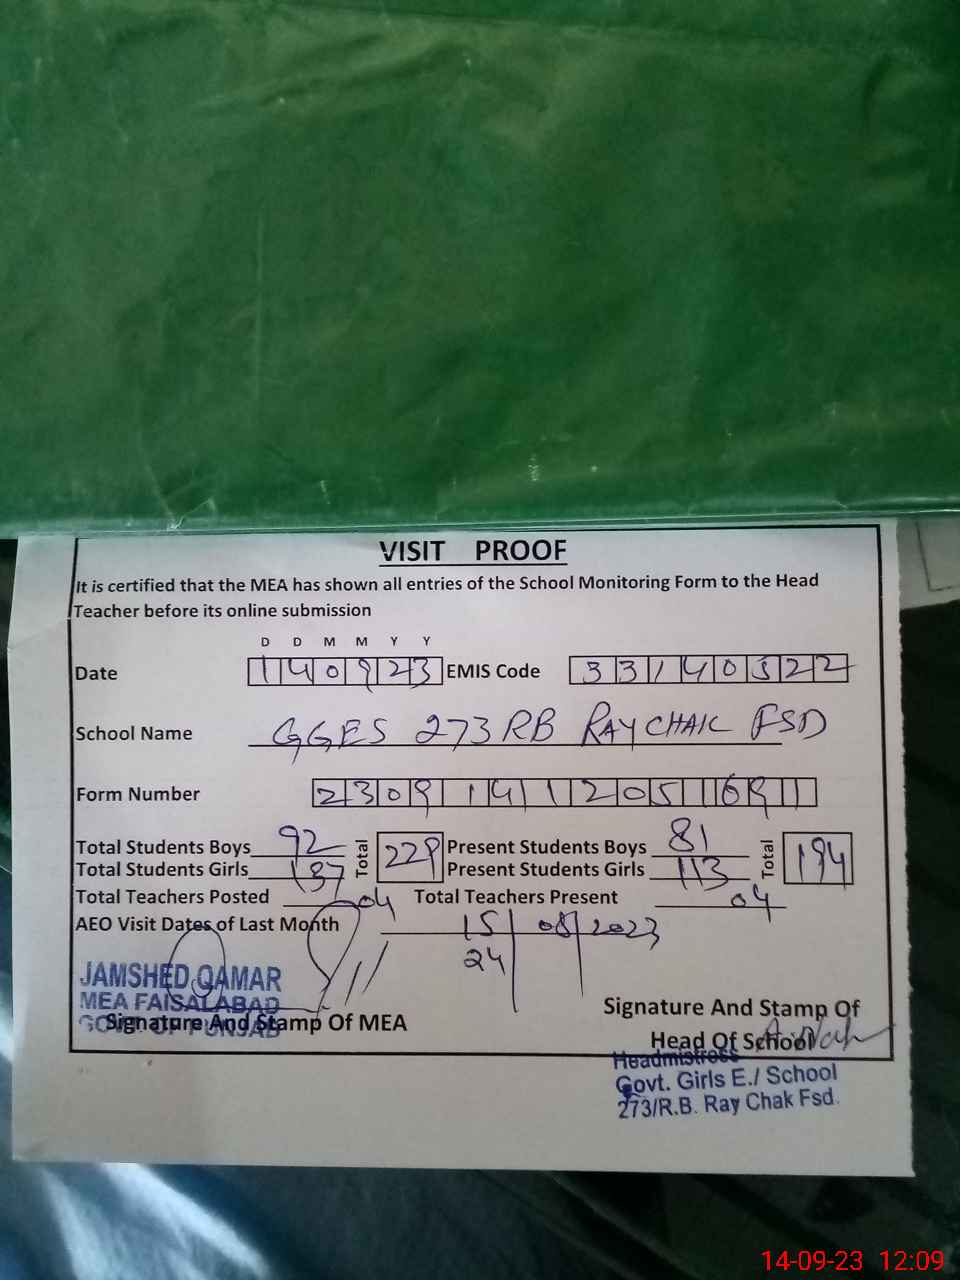 VISIT PROOF
It is certified that the MEA has shown all entries of the School Monitoring Form to the Head
Teacher before its online submission
D D M M Y Y
Date 140923 EMIS Code 33140322
School Name GGES 273 RB RAY CHAK FSD
Form Number 23091412051691
Total Students Boys 92 Total 229 Present Students Boys 81 Total 194
Total Students Girls 137 Present Students Girls 113
Total Teachers Posted 04 Total Teachers Present 04
AEO Visit Dates of Last Month 15 08 2023
24
JAMSHED QAMAR
MEA FAISALABAD
GOVT. OF PUNJAB
Signature And Stamp Of MEA
Signature And Stamp Of
Head Of School
Headmistress
Govt. Girls E./ School
273/R.B. Ray Chak Fsd.
14-09-23 12:09